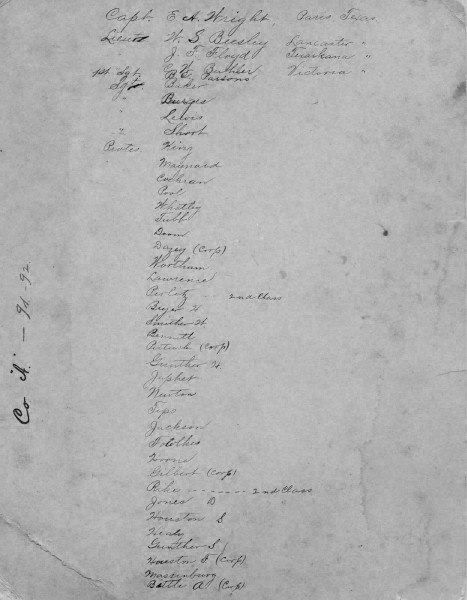 Capt. E. A. Wright Paris, Texas
Lieut W. S. Beesley Lancaster "
J. T. Floyd Texarkana "
1st Sgt. Buhler Victoria "
B. E. Parsons
Sgt Baker
" Burges
Lewis
" Short
Privates. King
Maynard
Cochran
Pool
Whatley
Tubb
Doom
Dazey (Corp)
Wortham
Lawrence
Perlitz 2nd Class
Beyer H
W.
Bennett
(Corp)
Gunther H.
Japhet
Newton
Tips
Jackson
Gilbert (Corp)
Rike ------- 2nd Class
Jones D
Houston S
Neals
Gunther S
Houston E (Corp)
Massenburg
Battle A. (Corp)
Co "A" - 91-92